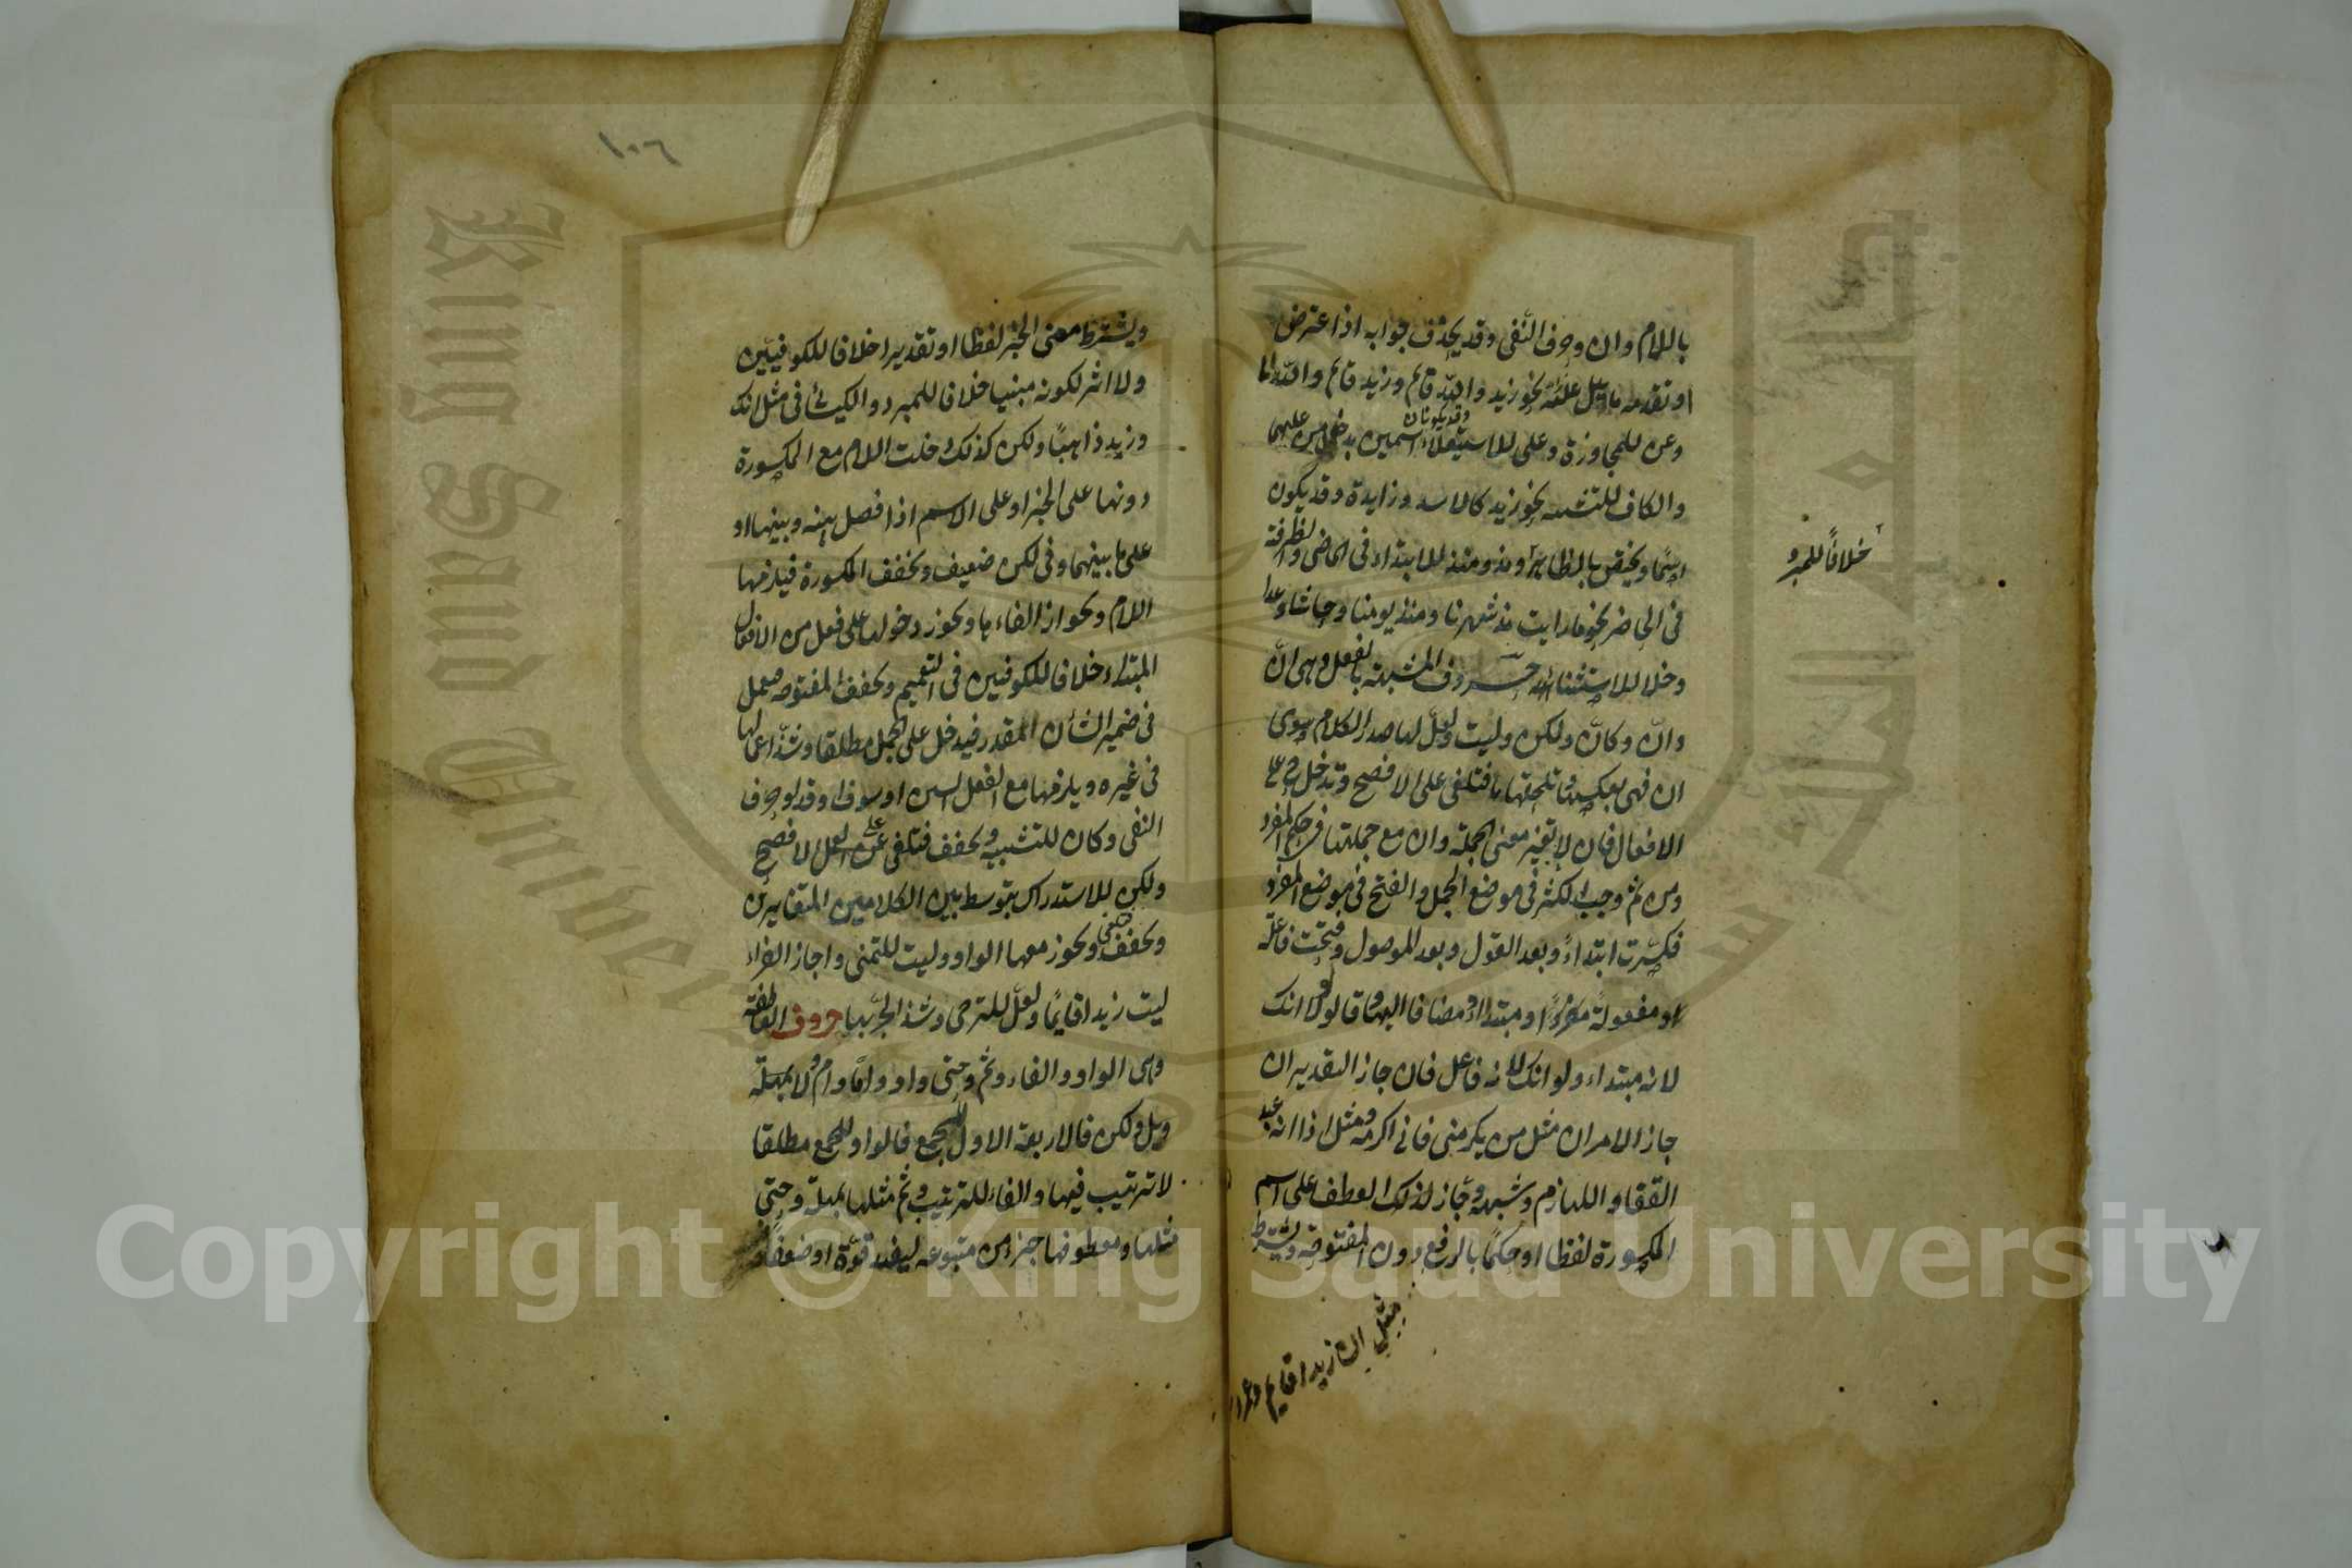 باللام وان وحرف النفى وقد يحذف جوابه اذا اعترض
او تقدمه ما يدل عليه نحو زيد والله قائم وزيد قائم والله
وعن للمجاوزة وعلى للاستعلاء وقد يكونان اسمين بدخول من عليهما
والكاف للتشبيه نحو زيد كالاسد وزايدة وقد يكون
اسما ويختص بالظاهر ومذ ومنذ للابتداء فى الماضى والظرفية
فى الحاضر نحو ما رايت مذ شهرنا ومنذ يومنا وحاشا وعدا
وخلا للاستثناء حروف المشبهة بالفعل وهى انّ
وانّ وكانّ ولكن وليت ولعلّ لها صدر الكلام سوى
ان فهى بعكسها وتلحقها ما فتلغى على الافصح وتدخل ح على
الافعال فان لا تغير معنى الجملة وان مع جملتها فى حكم المفرد
ومن ثم وجب الكسر فى موضع الجمل والفتح فى موضع المفرد
فكسرت ابتداءً وبعد القول وبعد الموصول وفتحت فاعلة
او مفعولة او مبتدا او مضافا اليها وقالوا لولا انك
لانه مبتداء ولو انك لانه فاعل فان جاز التقديران
جاز الامران مثل من يكرمنى فانى اكرمه ومثل اذا انه عبد
القفا و اللهازم وشبهه وجاز لذلك العطف على اسم
المكسورة لفظا او حكمًا بالرفع دون المفتوحة ويشترط
مثل ان زيدا قايم وعمرو
خلافًا للمبرد
١٠٦
ويشترط معنى الخبر لفظا او تقديرا خلافا للكوفيين
ولا اثر لكونه مبنيا خلافا للمبرد والكسائى فى مثل انك
وزيد ذاهبًا ولكن كذلك دخلت اللام مع المكسورة
دونها على الخبر او على الاسم اذا فصل بينه وبينها او
على ما بينهما وفى لكن ضعيف وتخفف المكسورة فيلزمها
اللام ويجوز الغاء ها ويجوز دخولها على فعل من الافعال
المبتداء خلافا للكوفيين فى التعميم وتخفف المفتوحه فتعمل
فى ضمير الشأن المقدر فيدخل على الجمل مطلقا وشذ اعمالها
فى غيره ويلزمها مع الفعل السين او سوف او قد او حرف
النفى وكان للتشبيه وتخفف فتلغى على الافصح
ولكن للاستدراك يتوسط بين الكلامين المتغايرين
وتخفف فتلغى ويجوز معها الواو وليت للتمنى واجاز الفراء
ليت زيدا قايمًا ولعلّ للترجى وشذ الجرّ بها حروف العاطفة
وهى الواو والفاء وثم وحتى واو واما وام ولا
وبل ولكن فالاربعة الاول للجمع فالواو للجمع مطلقا
لا ترتيب فيها والفاء للترتيب وثم مثلها بمهلة وحتى
مثلها ومعطوفها جزء من متبوعه ليفيد قوّة او ضعفًا
Copyright © King Saud University
King Saud University